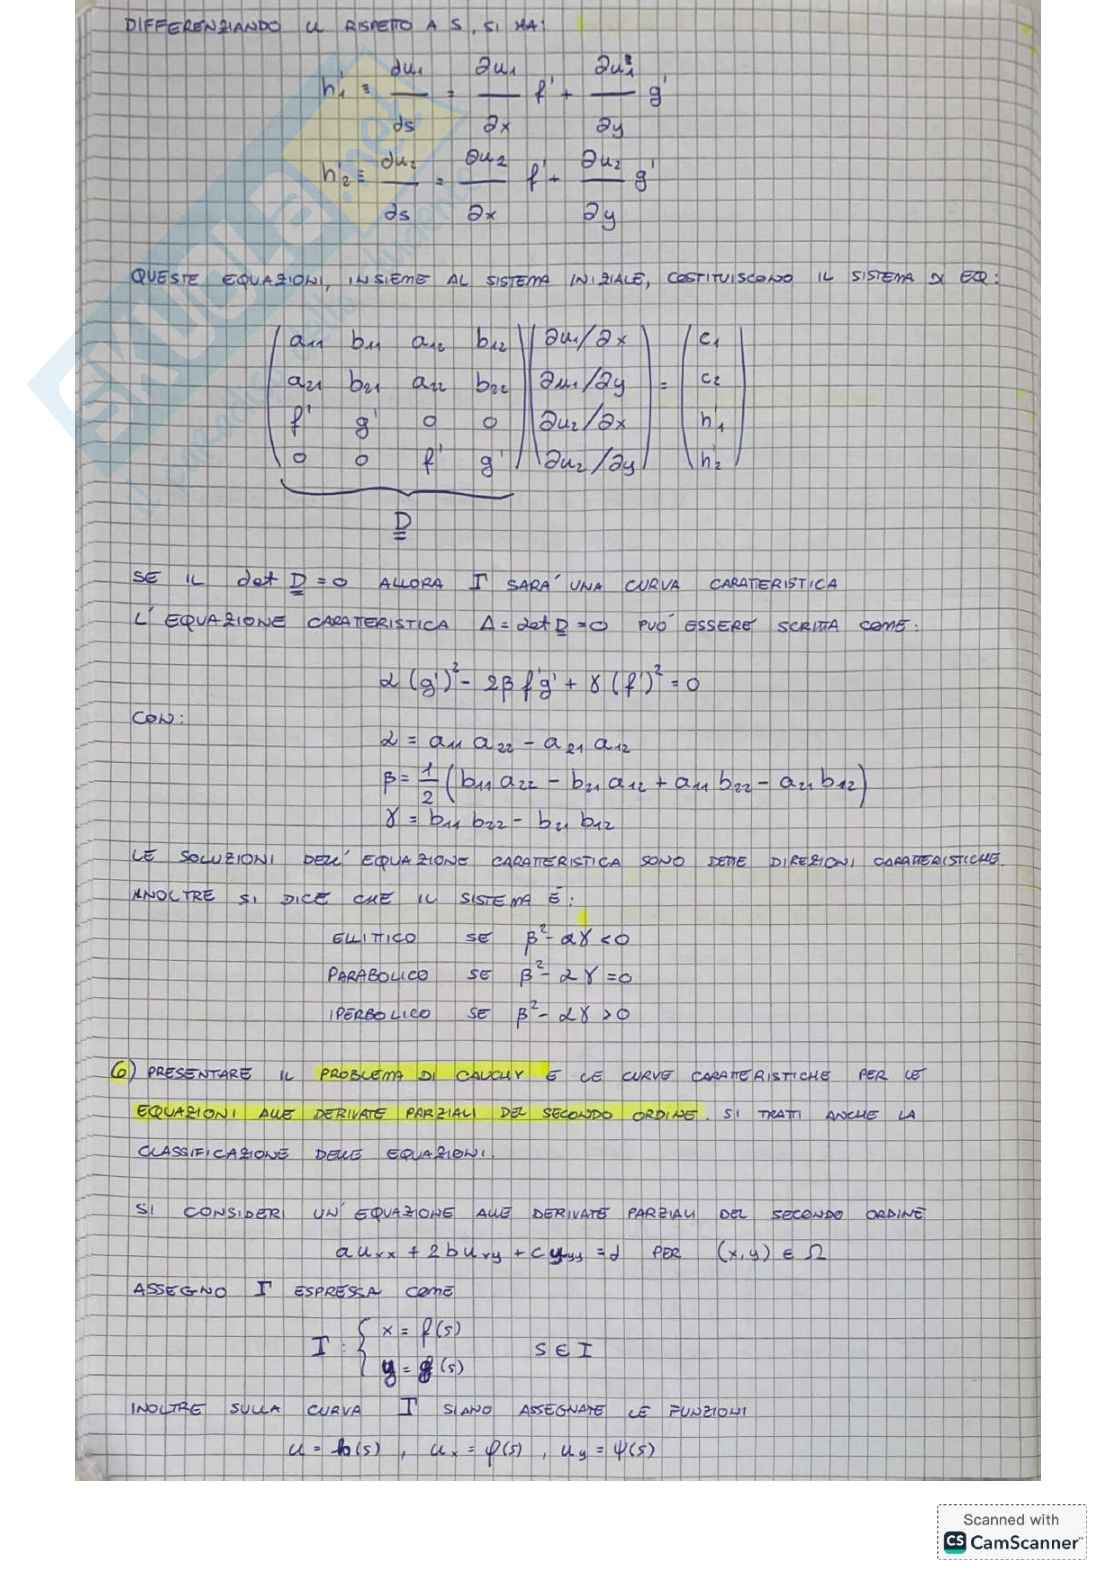 DIFFERENZIANDO u RISPETTO A S, SI HA:
h'₁ ≡ du₁/ds = ∂u₁/∂x f' + ∂u₁/∂y g'
h'₂ ≡ du₂/ds = ∂u₂/∂x f' + ∂u₂/∂y g'
QUESTE EQUAZIONI, INSIEME AL SISTEMA INIZIALE, COSTITUISCONO IL SISTEMA DI EQ:
a₁₁ b₁₁ a₁₂ b₁₂ ∂u₁/∂x = c₁
a₂₁ b₂₁ a₂₂ b₂₂ ∂u₁/∂y c₂
f' g' 0 0 ∂u₂/∂x h'₁
0 0 f' g' ∂u₂/∂y h'₂
D
SE IL det D = 0 ALLORA Γ SARA' UNA CURVA CARATTERISTICA
L'EQUAZIONE CARATTERISTICA Δ = det D = 0 PUO' ESSERE SCRITTA COME:
α (g')² - 2β f'g' + γ (f')² = 0
CON:
α = a₁₁ a₂₂ - a₂₁ a₁₂
β = 1/2 (b₁₁ a₂₂ - b₂₁ a₁₂ + a₁₁ b₂₂ - a₂₁ b₁₂)
γ = b₁₁ b₂₂ - b₂₁ b₁₂
LE SOLUZIONI DELL'EQUAZIONE CARATTERISTICA SONO DETTE DIREZIONI CARATTERISTICHE
INOLTRE SI DICE CHE IL SISTEMA È:
ELLITTICO SE β² - αγ < 0
PARABOLICO SE β² - αγ = 0
IPERBOLICO SE β² - αγ > 0
6) PRESENTARE IL PROBLEMA DI CAUCHY E LE CURVE CARATTERISTICHE PER LE
EQUAZIONI ALLE DERIVATE PARZIALI DEL SECONDO ORDINE. SI TRATTI ANCHE LA
CLASSIFICAZIONE DELLE EQUAZIONI.
SI CONSIDERI UN'EQUAZIONE ALLE DERIVATE PARZIALI DEL SECONDO ORDINE
a uₓₓ + 2b uₓy + c uyy = d PER (x,y) ∈ Ω
ASSEGNO Γ ESPRESSA COME
Γ: { x = f(s)
y = g(s) S ∈ I
INOLTRE SULLA CURVA Γ SIANO ASSEGNATE LE FUNZIONI
u = h(s) , uₓ = φ(s) , uy = ψ(s)
SKUOLA.net
Scanned with
CS CamScanner